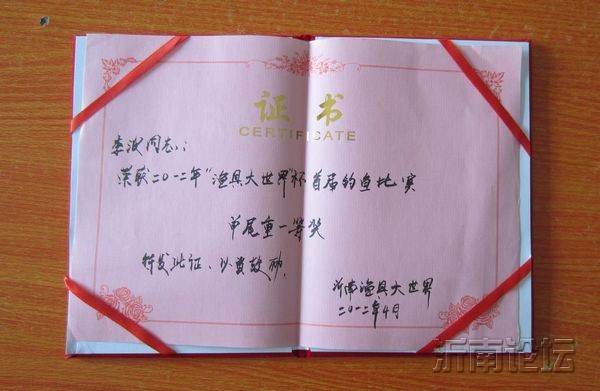 证书
CERTIFICATE
李波同志：
荣获二〇一二年“渔具大世界”杯首届钓鱼比赛
单尾重一等奖
特发此证、以资鼓励。
沂南渔具大世界
二〇一二年4月
沂南论坛